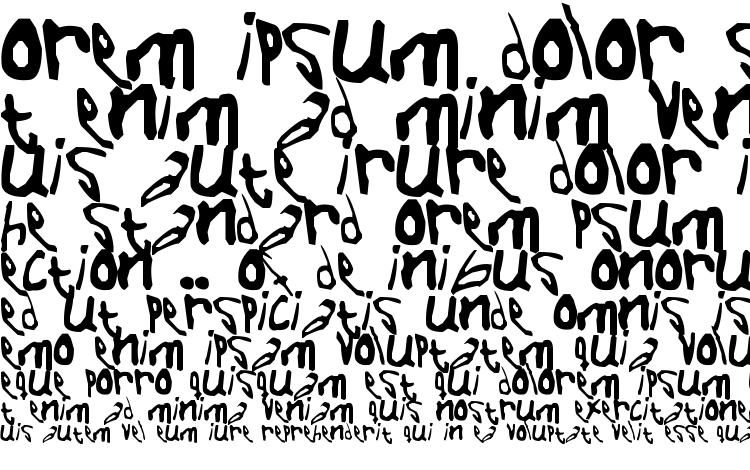 orem ipsum dolor s
t enim ad minim ven
uis aute irure dolor i
he standard orem psum
ection .. of de inibus onoru
ed ut perspiciatis unde omnis is
emo enim ipsam voluptatem quia volu
eque porro quisquam est qui dolorem ipsum
t enim ad minima veniam quis nostrum exercitatione
uis autem vel eum iure reprehenderit qui in ea voluptate velit esse qua